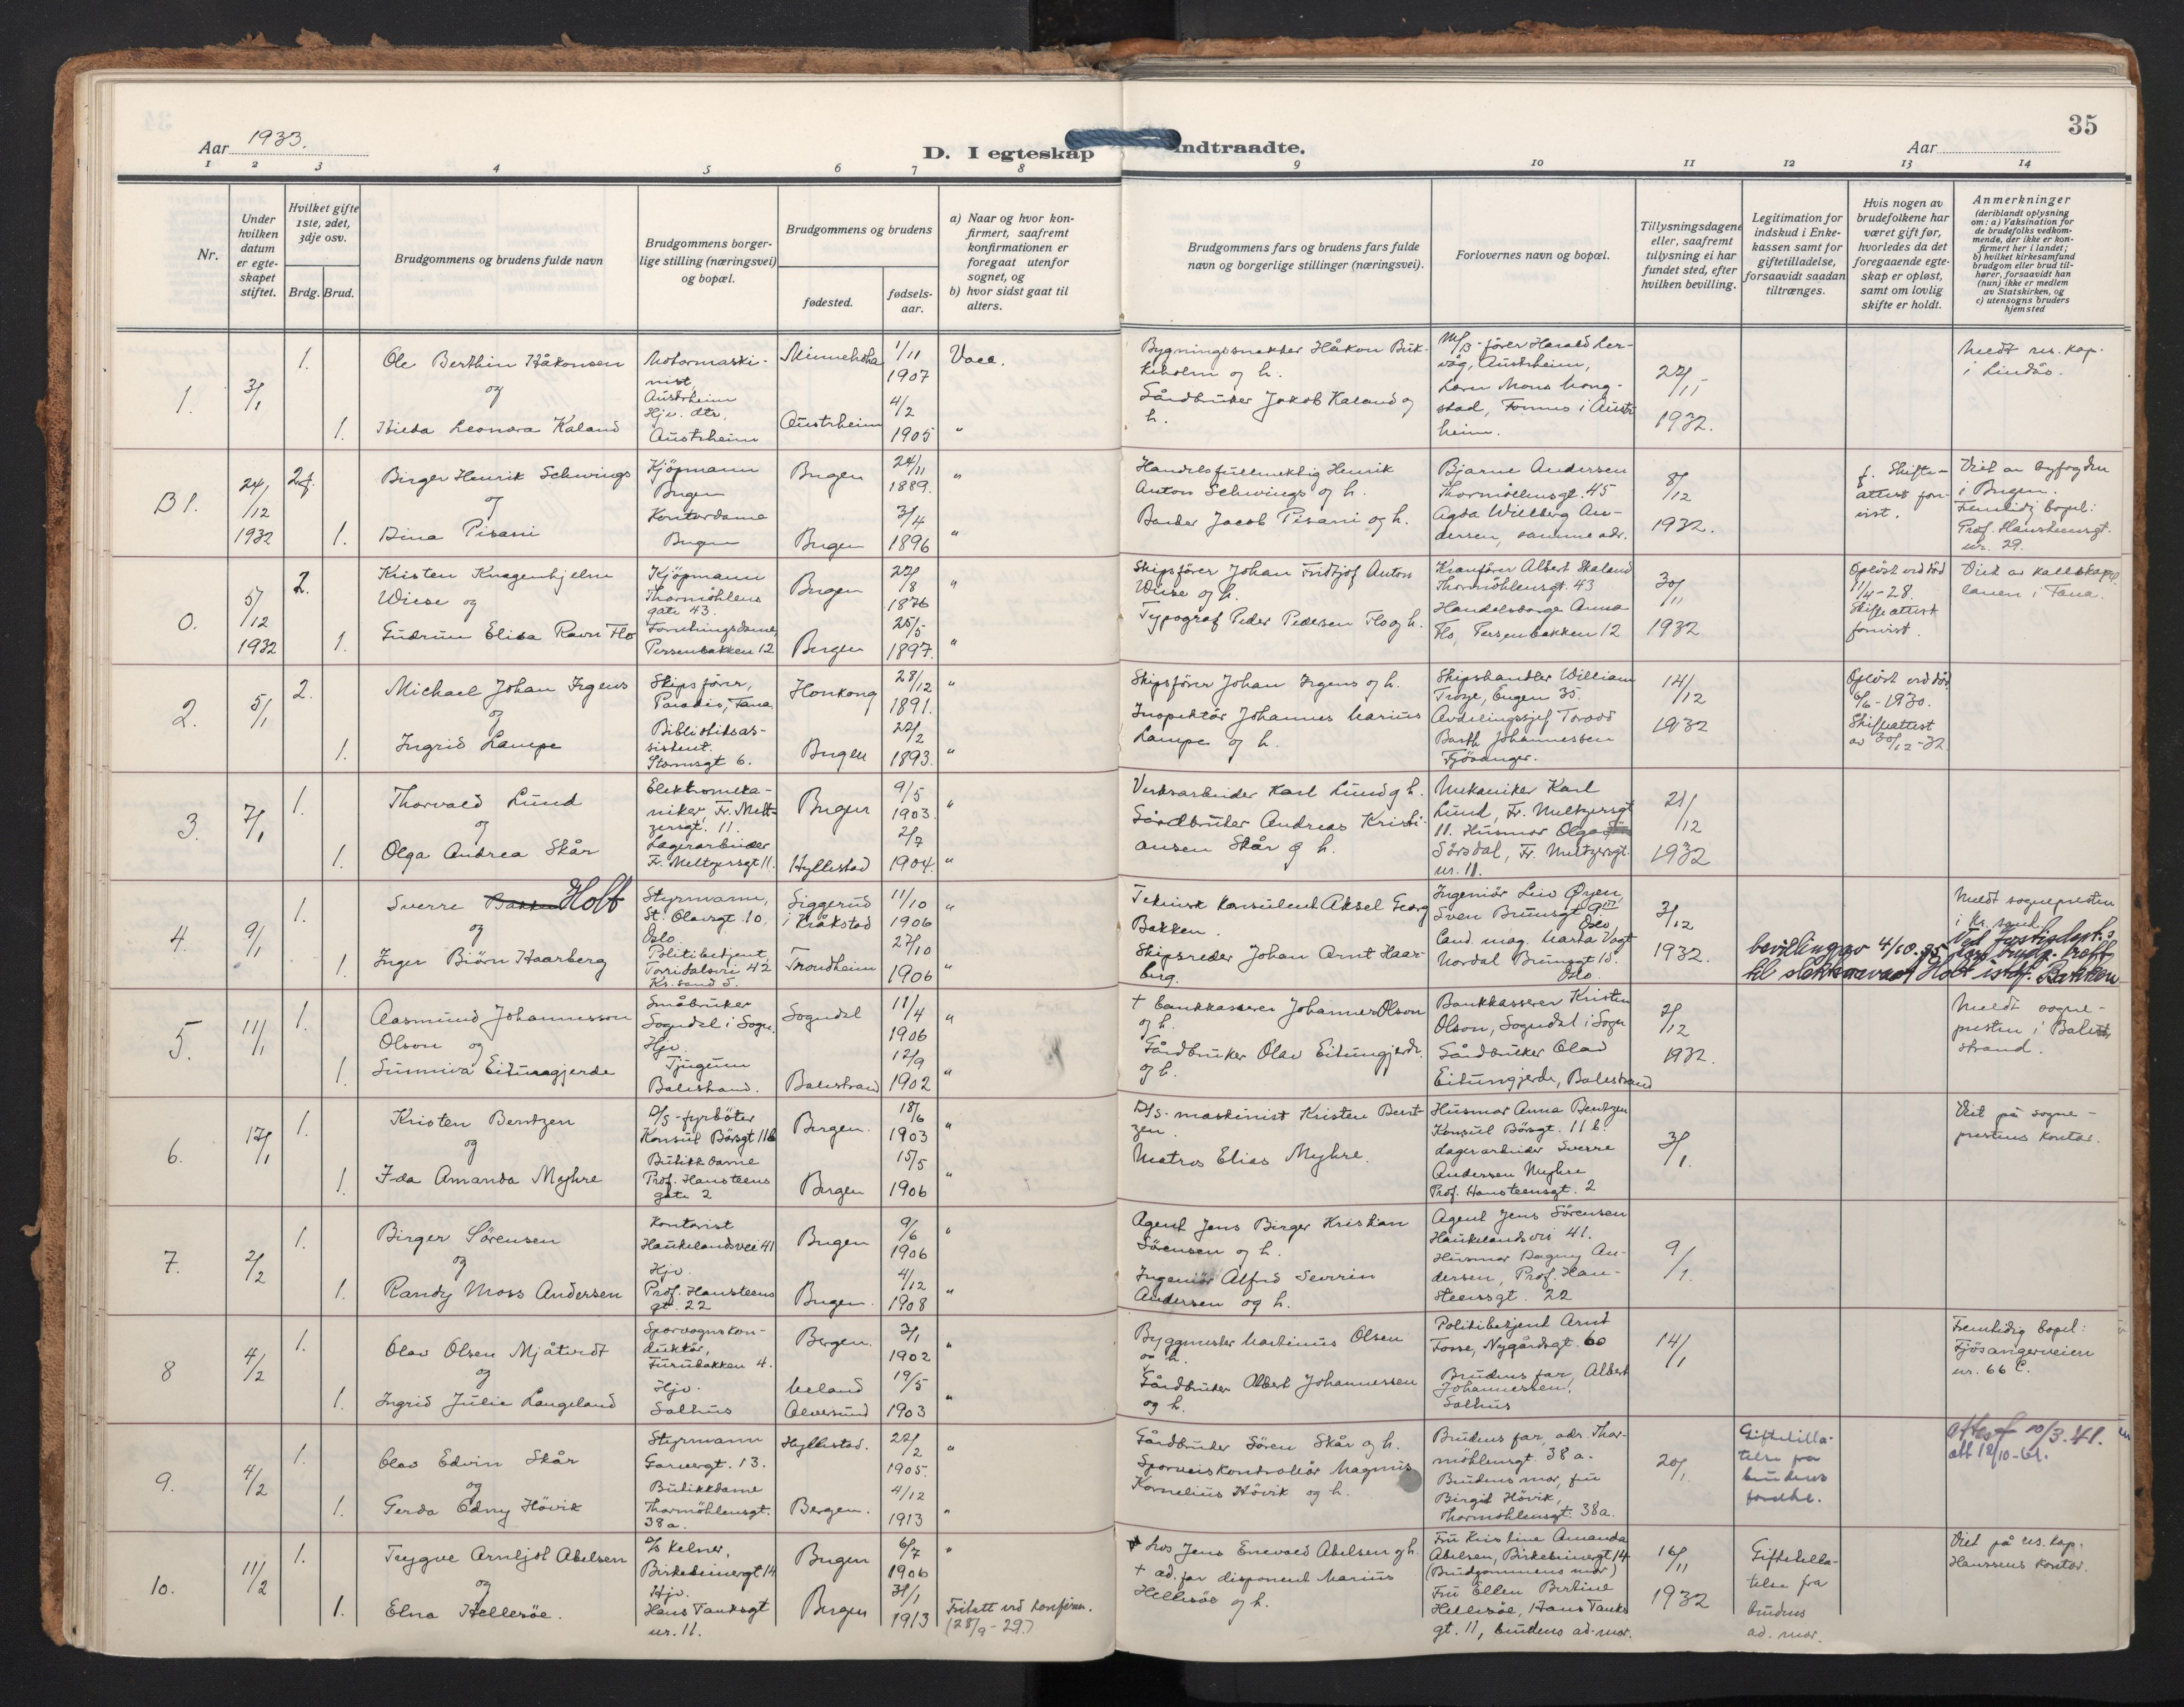 35
Aar 1933.
D. I egteskap indtraadte.
Aar
1 2 3 4 5 6 7 8 9 10 11 12 13 14
Nr.
Under hvilken datum er egteskapet stiftet.
Hvilket gifte 1ste, 2det, 3dje osv.
Brdg. Brud.
Brudgommens og brudens fulde navn
Brudgommens borgerlige stilling (næringsvei) og bopæl.
Brudgommens og brudens
fødested.
fødselsaar.
a) Naar og hvor konfirmert, saafremt konfirmationen er foregaat utenfor sognet, og
b) hvor sidst gaat til alters.
Brudgommens fars og brudens fars fulde navn og borgerlige stillinger (næringsvei).
Forlovernes navn og bopæl.
Tillysningsdagene eller, saafremt tillysning ei har fundet sted, efter hvilken bevilling.
Legitimation for indskud i Enkekassen samt for giftetilladelse, forsaavidt saadan tiltrænges.
Hvis nogen av brudefolkene har været gift før, hvorledes da det foregaaende egteskap er opløst, samt om lovlig skifte er holdt.
Anmerkninger
(deriblandt oplysning om: a) Vaksination for de brudefolks vedkommende, der ikke er konfirmert her i landet; b) hvilket kirkesamfund brudgom eller brud tilhører, forsaavidt han (hun) ikke er medlem av Statskirken, og c) utensogns bruders hjemsted
1. 3/1 1. Ole Berthin Håkonsen
og
1. Hilda Leonora Kaland
Motormaskinist, Austrheim
Hjv. dtr. Austrheim
Minnehaha 1/11 1907 Vacc.
Austrheim 4/2 1905 "
Bygningssnekker Håkon Bukkholm og h.
Gårdbruker Jakob Kaland og h.
M/B-fører Harald Lervåg, Austrheim,
Lærer Mons Mongstad, Fonnes i Austrheim.
22/11 1932.
Meldt res. kap. i Lindås.
B 1. 24/12 1932 2 f. Birger Henrik Schwings
og
1. Dina Pisani
Kjöpmann Bergen
Kontordame Bergen
Bergen 24/11 1889. "
Bergen 3/4 1896 "
Handelsfullmektig Henrik Anton Schwings og h.
Bunder Jacob Pisani og h.
Bjarne Andersen Thormöhlensgt. 45
Agda Willberg Andersen, samme adr.
8/12 1932.
f. Skifteattest forevist.
Viet av byfogden i Bergen.
Fremtidig bopel: Prof. Hansteensgt. nr. 29.
0. 5/12 1932 2. Kristen Knagenhjelm Wiese og
1. Gudrun Elisa Ravn Flo
Kjöpmann Thormöhlens gate 43.
Forretningsdame, Persenbakken 12
Bergen 22/8 1876 "
Bergen 25/5 1897. "
Skipsfører Johan Fridtjof Anton Wiese og h.
Typograf Peder Pedersen Flo og h.
Kranfører Albert Skaland Thormöhlensgt. 43
Handelsborger Anna Flo, Persenbakken 12
30/11 1932
Opløst ved död 1/4-28. Skifteattest forevist.
Viet av kallskapellanen i Fana.
2. 5/1 2. Michael Johan Irgens
og
1. Ingrid Lampe
Skipsfører, Paradis, Fana
Biblioteksassistent. Stormsgt 6.
Honkong 28/12 1891. "
Bergen 22/2 1893. "
Skipsfører Johan Irgens og h.
Inspektör Johannes Marius Lampe og h.
Skipshandler William Troye, Engen 35.
Avdelingssjef Torodd Barth Johannessen Fjösanger.
14/12 1932
Opløst ved död 6/6-1930. Skifteattest av 30/12-32.
3. 7/1 1. Thorvald Lund
og
1. Olga Andrea Skår
Elektromekaniker, Fr. Meltzersgt. 11.
Lagerarbeider Fr. Meltzersgt 11.
Bergen 9/5 1903. "
Hyllestad 2/7 1904. "
Verksarbeider Karl Lund og h.
Gårdbruker Andreas Kristiansen Skår og h.
Mekaniker Karl Lund, Fr. Meltzersgt 11. Husmor Olga Sörsdal, Fr. Meltzersgt. nr. 11.
21/12 1932
4. 9/1 1. Sverre Bakken Holt
og
1. Inger Biörn Haarberg
Styrmann, St. Olavsgt. 10, Oslo
Politibetjent, Torridalsvei 42 Kr.sand S.
Siggerud i Kråkstad 11/10 1906 "
Trondheim 27/10 1906 "
Teknisk Konsulent Aksel Georg Bakken.
Skipsreder Johan Arnt Haarberg.
Ingeniör Leiv Øyen, Sven Bruunsgt 9 III Oslo
Cand. mag. Marta Vogt Nordal Brunsgt 15. Oslo.
3/12 1932.
Meldt sognepresten i Kr.sand S.
Ved justisdept.s bevilling av 4/10.35 har brudg. rett til slektsnavnet Holt istdf. Bakken
5. 11/1 1. Aasmund Johannesson Olson og
1. Sunniva Eitungjerde
Småbruker Sogndal i Sogn.
Hjv. Tjugum Balestrand.
Sogndal 11/4 1906 "
Balestrand 12/9 1902 "
+ Bankkasserer Johannes Olson og h.
Gårdbruker Olav Eitungjerde og h.
Bankkasserer Kristen Olson, Sogndal i Sogn
Gårdbruker Olav Eitungjerde, Balestrand
2/12 1932.
Meldt sognepresten i Balestrand.
6. 17/1 1. Kristen Berntzen
og
1. Ida Amanda Myhre
D/S-fyrböter Konsul Börsgt 11b
Butikkdame Prof. Hansteens gate 2
Bergen. 18/6 1903 "
Bergen 15/5 1906 "
D/S-maskinist Kristen Berntzen.
Matros Elias Myhre.
Husmor Anna Berntzen Konsul Börsgt. 11 b.
Lagerarbeider Sverre Andersen Myhre Prof. Hansteensgt. 2
3/1.
Viet på sogneprestens kontor.
7. 2/2 1. Birger Sörensen
og
1. Randy Moss Andersen
Kontorist Haukelandsvei 41
Hjv. Prof. Hansteens gt. 22
Bergen 9/6 1906 "
Bergen. 4/12 1908 "
Agent Jens Birger Kristian Sörensen og h.
Ingeniör Alfred Severin Andersen og h.
Agent Jens Sörensen Haukelandsvei 41.
Husmor Dagny Andersen, Prof. Hansteensgt. 22
9/1.
8 4/2 1. Olav Olsen Mjåtvedt
og
1. Ingrid Julie Langeland
Sporvognskonduktör, Furubakken 4.
Hjv. Salhus
Bergen. 3/1 1902 "
Meland Alversund 19/5 1903 "
Byggmester Martinus Olsen og h.
Gårdbruker Albert Johannessen og h.
Politibetjent Arnt Fosse, Nygårdsgt. 60
Brudens far, Albert Johannessen, Salhus
14/1
Fremtidig bopel: Fjösangerveien nr. 66 C.
9. 4/2 1. Olav Edvin Skår
og
1. Gerda Edny Hövik
Styrmann Garvergt. 13.
Butikkdame Thormöhlensgt. 38a.
Hyllestad. 22/2 1905. "
Bergen. 4/12 1913 "
Gårdbruker Sören Skår og h.
Sporveiskontrollör Magnus Kornelius Hövik og h.
Brudens far, adr. Thormöhlensgt. 38 a.
Brudens mor, fru Birgit Hövik, Thormöhlensgt. 38a.
20/1.
Giftetillatelse fra brudens foreldre.
Attest 10/3.41.
att 12/10-61.
10. 11/2 1. Trygve Arnljot Abelsen
og
1. Elna Hellesöe.
D/S Kelner, Birkebeinergt 14
Hjv. Hans Tanksgt nr. 11.
Bergen 6/7 1906 "
Bergen 31/1 1913 Fritatt ved konfirm. (28/9-29.)
+ Los Jens Enevald Abelsen og h.
+ ad.far disponent Marius Hellesöe og h.
Fru Kristine Amanda Abelsen, Birkebeinergt 14 (Brudgommens mor)
Fru Ellen Bertine Hellesöe, Hans Tanks gt. 11, brudens ad.mor.
16/11 1932
Giftetillatelse fra brudens ad. mor.
Viet på res. kap. Hanssens kontor.